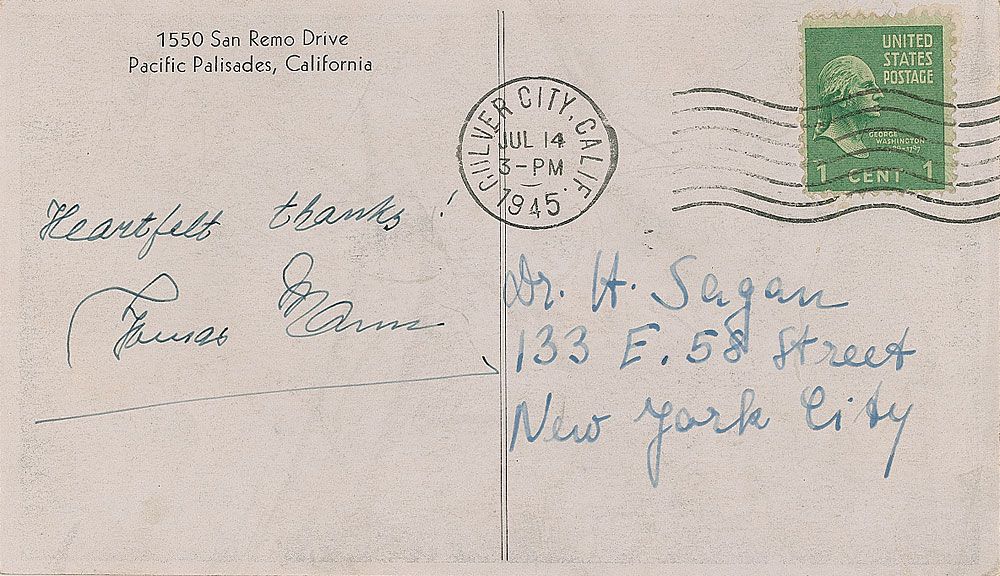 1550 San Remo Drive
Pacific Palisades, California
CULVER CITY, CALIF.
JUL 14
3-PM
1945
UNITED
STATES
POSTAGE
GEORGE
WASHINGTON
1 CENT 1
Heartfelt thanks!
Thomas Mann
Dr. H. Sagan
133 E. 58 Street
New York City